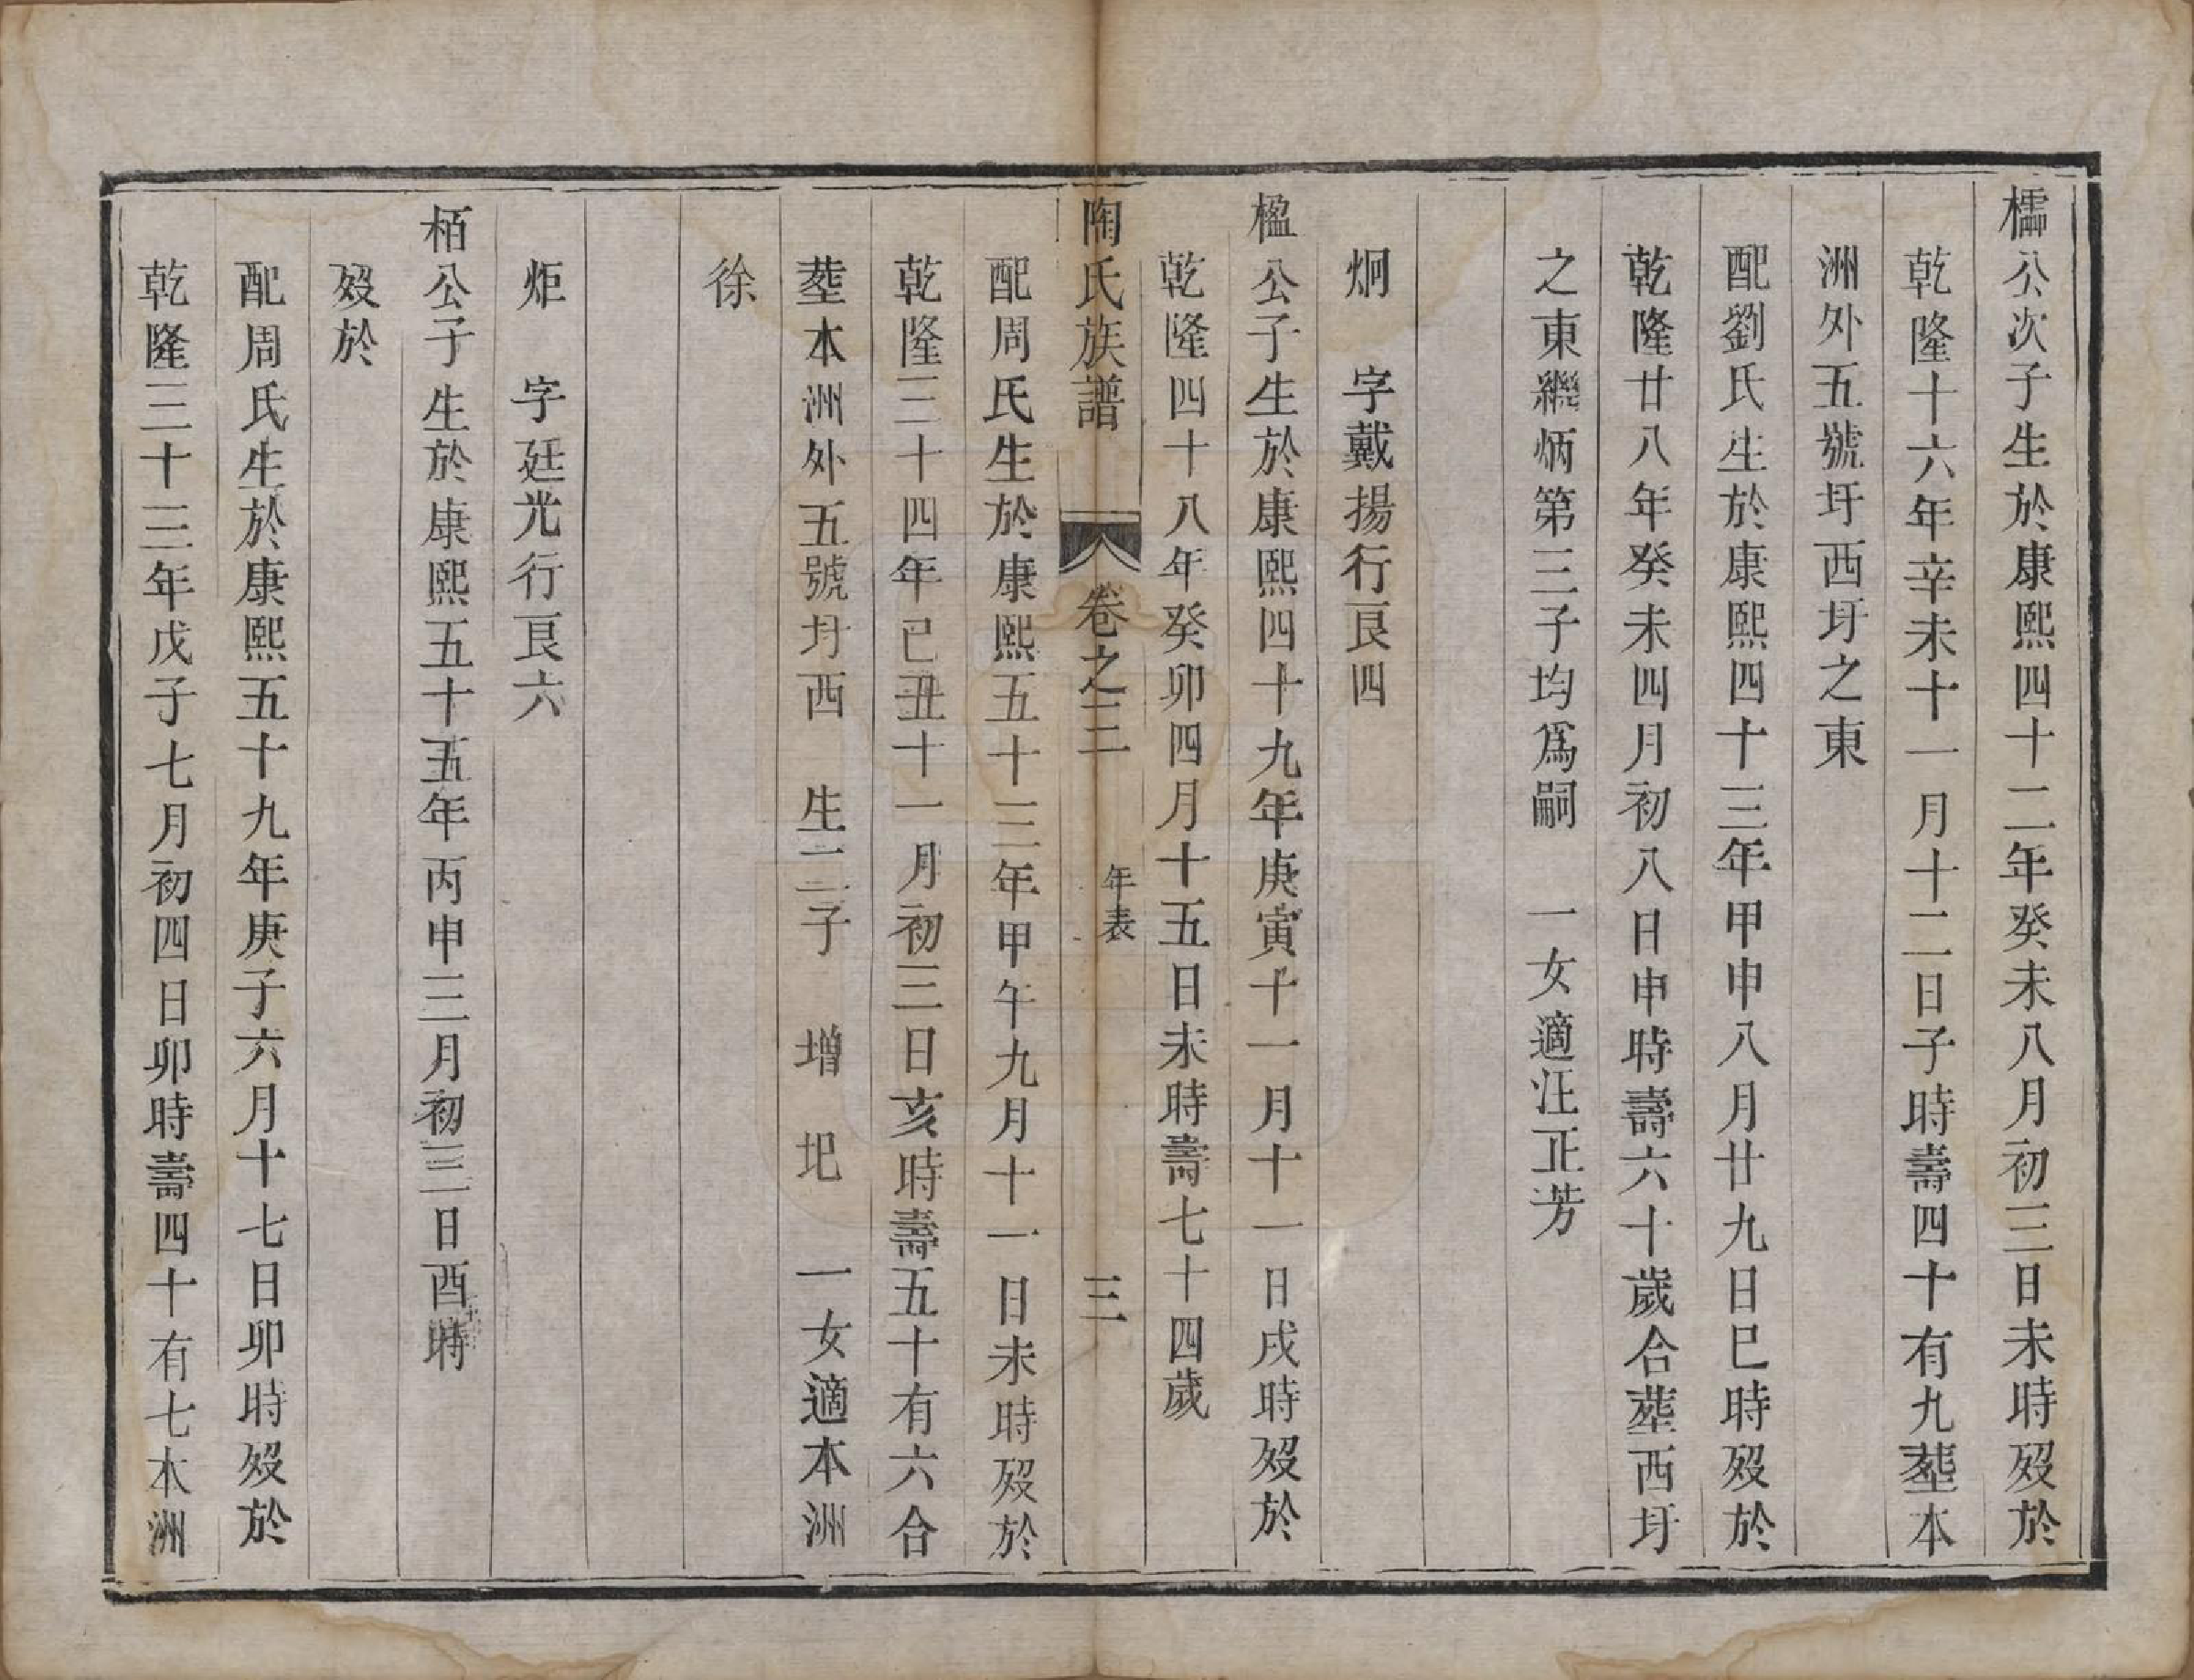 檽公次子生於康熙四十二年癸未八月初三日未時歿於
乾隆十六年辛未十一月十二日子時壽四十有九塟本
洲外五號圩西圩之東
配劉氏生於康熙四十三年甲申八月廿九日巳時歿於
乾隆廿八年癸未四月初八日申時壽六十歲合塟西圩
之東繼炳第三子均爲嗣　一女適汪正芳
炯　字戴揚行艮四
楹公子生於康熙四十九年庚寅十一月十一日戌時歿於
乾隆四十八年癸卯四月十五日未時壽七十四歲
陶氏族譜　卷之三　年表　三
配周氏生於康熙五十三年甲午九月十一日未時歿於
乾隆三十四年已丑十一月初三日亥時壽五十有六合
塟本洲外五號圩西　生二子　增　圯　一女適本洲
徐
炬　字廷光行艮六
栢公子生於康熙五十五年丙申三月初三日酉時
歿於
配周氏生於康熙五十九年庚子六月十七日卯時歿於
乾隆三十三年戊子七月初四日卯時壽四十有七本洲